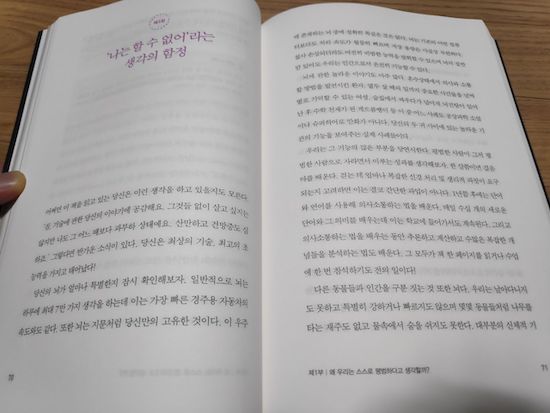 제5장
'나는 할 수 없어'라는
생각의 함정
어쩌면 이 책을 읽고 있는 당신은 이런 생각을 하고 있을지도 모른다.
'음, 기술에 관한 당신의 이야기에 공감해요. 그것들 없이 살고 싶지는
않지만 나도 그 어느 때보다 과부하 상태예요. 산만하고 건망증도 심
하죠.' 그렇다면 반가운 소식이 있다. 당신은 최상의 기술, 최고의 초
능력을 가지고 태어났다!
당신의 뇌가 얼마나 특별한지 잠시 확인해보자. 일반적으로 뇌는
하루에 최대 7만 가지 생각을 하는데 이는 가장 빠른 경주용 자동차의
속도와도 같다. 또한 뇌는 지문처럼 당신만의 고유한 것이다. 이 우주
70
에 존재하는 뇌 중에 정확히 똑같은 것은 없다. 뇌는 기존의 어떤 컴퓨
터보다도 처리 속도가 월등히 빠르며 저장 용량은 사실상 무한하다.
뇌의 힘은 놀라운 이야기에도 아주 많다.
우리는 그 기능의 많은 부분을 당연시한다. 평범한 사람이 그저 평
범한 사람으로 자라면서 이루는 성과를 생각해보자. 한 살쯤이면 걸음
마를 배운다. 걷는 데 얼마나 복잡한 신경 처리 및 생리적 과정이 요구
되는지 고려하면 이는 결코 간단한 과업이 아니다. 1년쯤 후에는 단어
와 언어를 사용해 의사소통하는 법을 배운다. 매일 수십 개의 새로운
단어와 그 의미를 배우는데 이는 학교에 들어가서도 계속된다. 그리고
의사소통하는 법을 배우는 동안 추론하고 계산하고 수없은 복잡한 개
념들을 분석하는 법도 배운다. 그 모두가 책 한 페이지를 읽거나 수업
에 한 번 참석하기도 전의 일이다!
다른 동물들과 인간을 구분 짓는 것 또한 뇌다. 우리는 날아다니지
도 못하고 특별히 강하거나 빠르지도 않으며 몇몇 동물들처럼 나무를
타는 재주도 없고 물속에서 숨을 쉬지도 못한다. 대부분의 신체적 기
제1부 | 왜 우리는 스스로 평범하다고 생각할까?
71